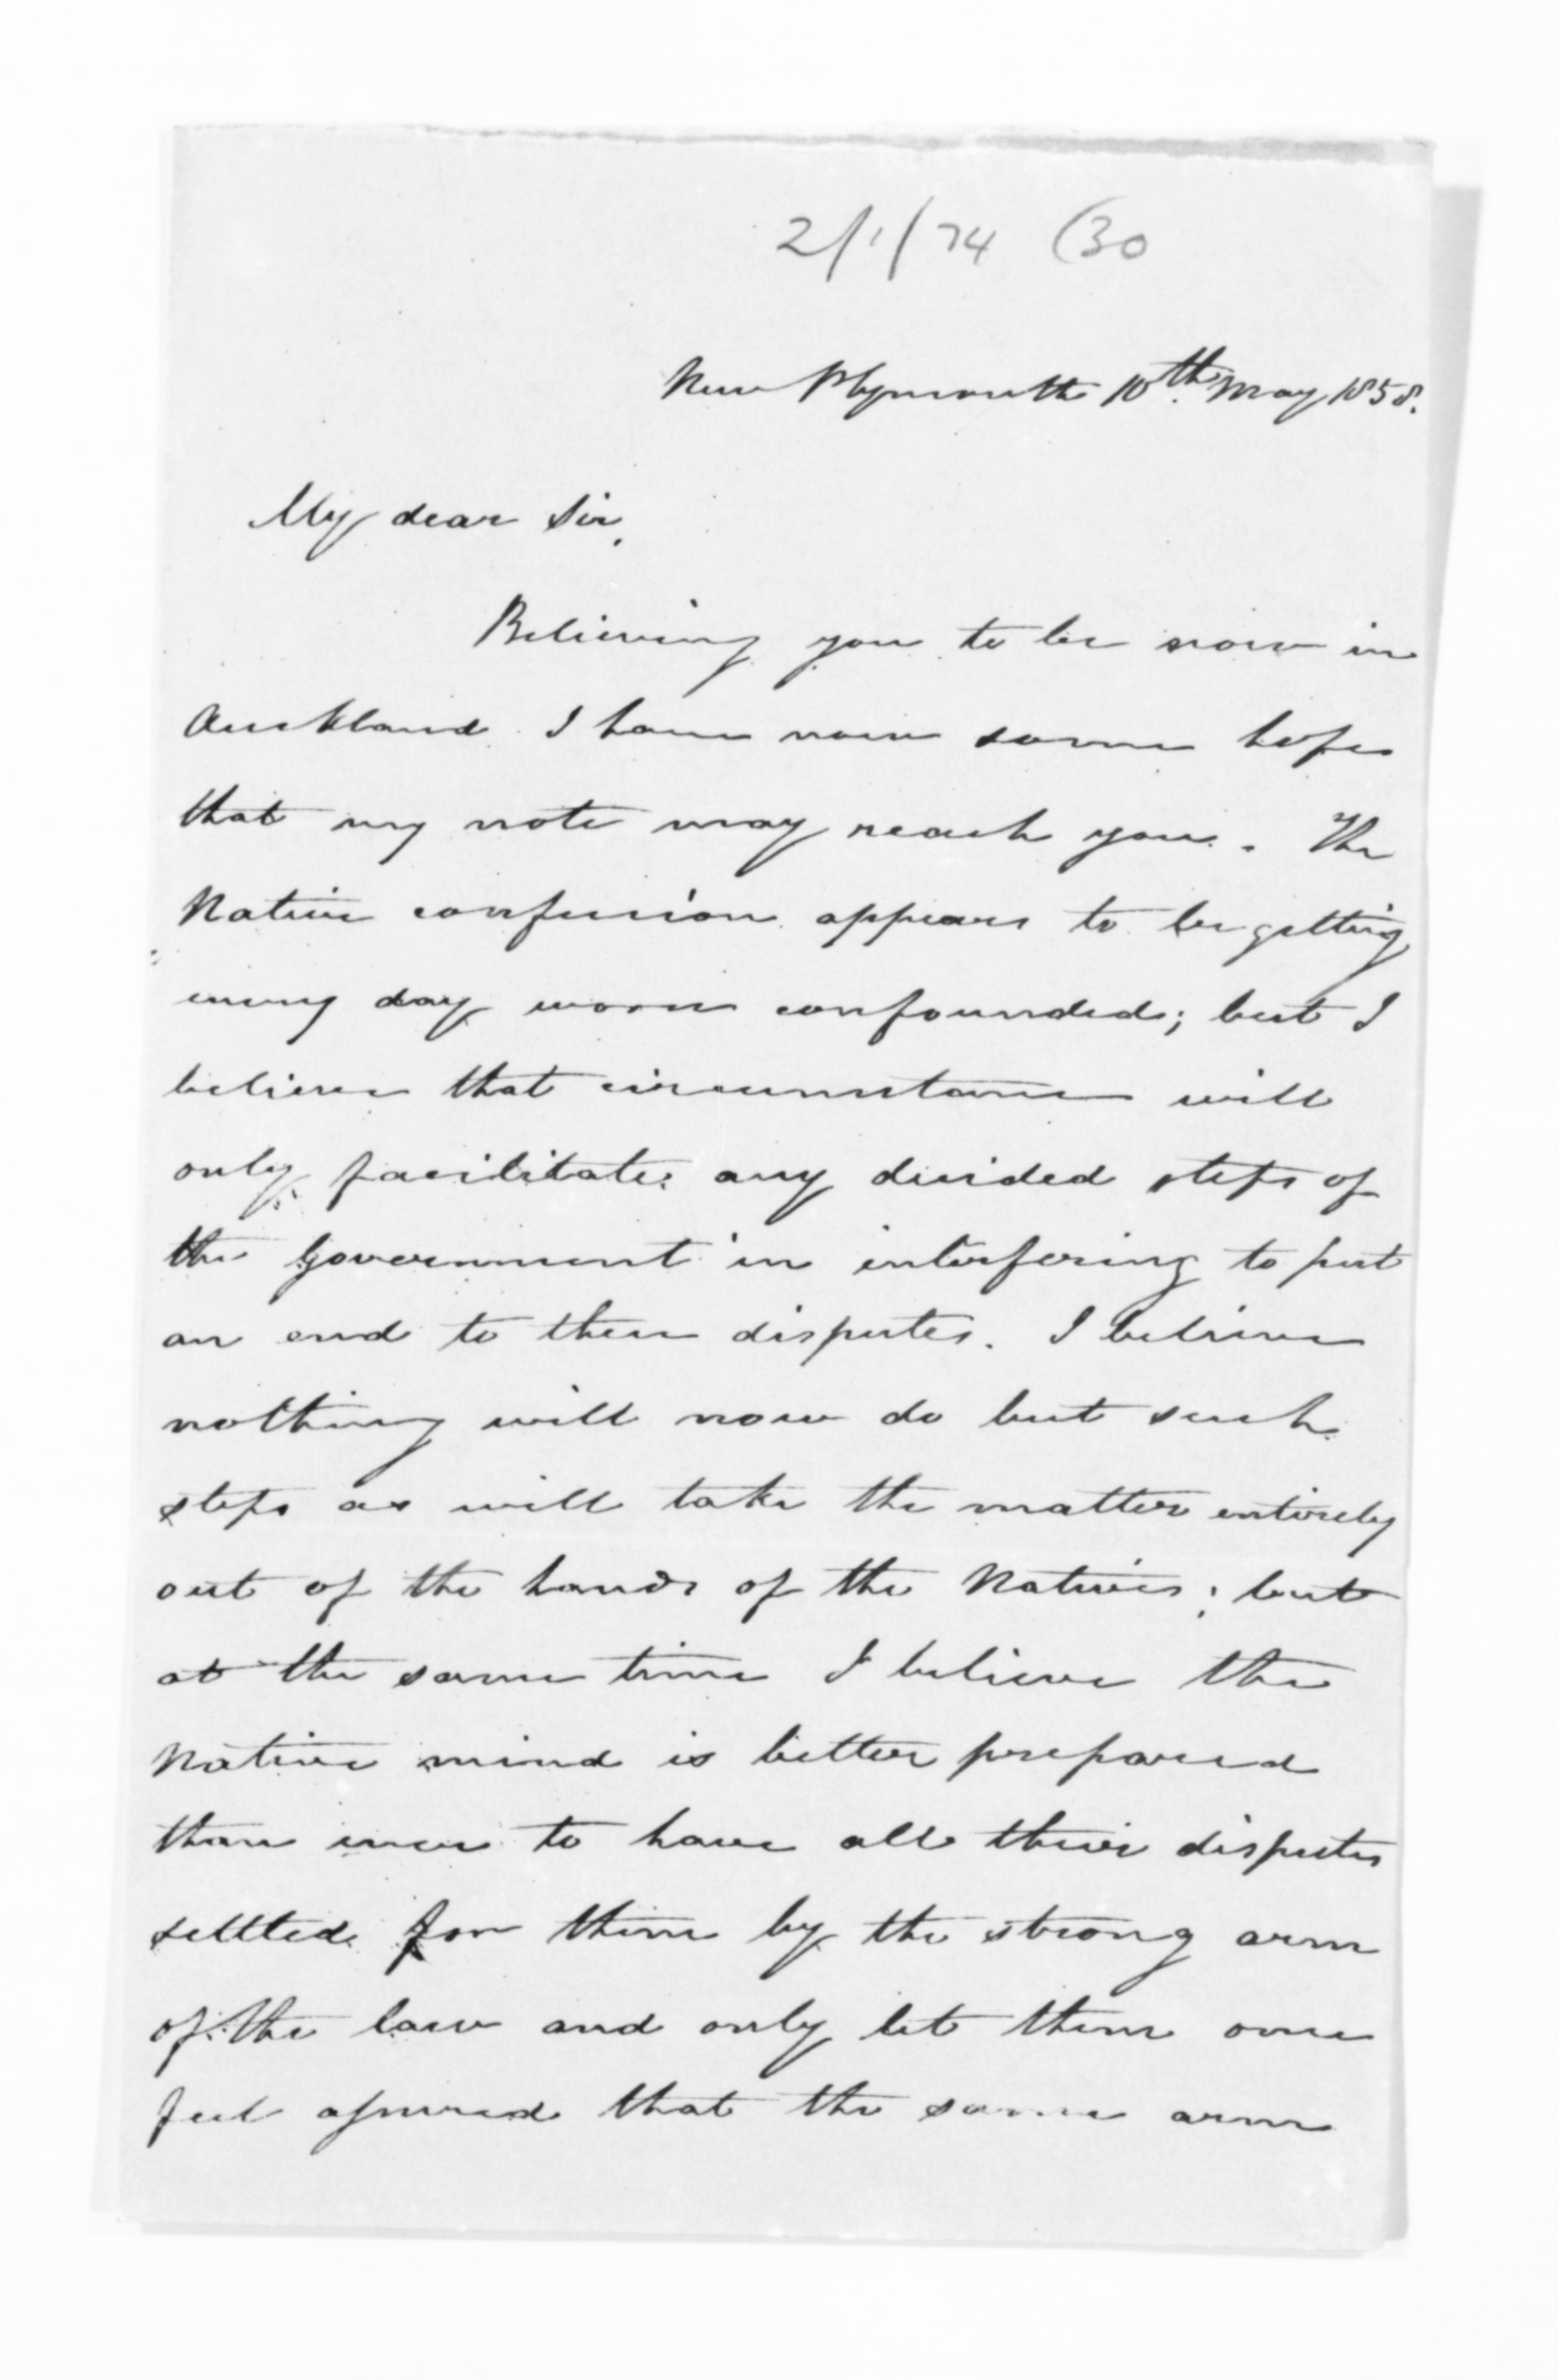 2/1/74 (30
New Plymouth 10th May 1858.
My dear Sir,
Believing you to be now in
Auckland I have now some hope
that my note may reach you. The
Native confusion appears to be getting
every day worse confounded; but I
believe that circumstance will
only facilitate any divided steps of
the Government in interfering to put
an end to these disputes. I believe
nothing will now do but such
steps as will take the matter entirely
out of the hands of the Natives; but
at the same time I believe the
Native mind is better prepared
than ever to have all their disputes
settled for them by the strong arm
of the law and only let them once
feel assured that the same arm